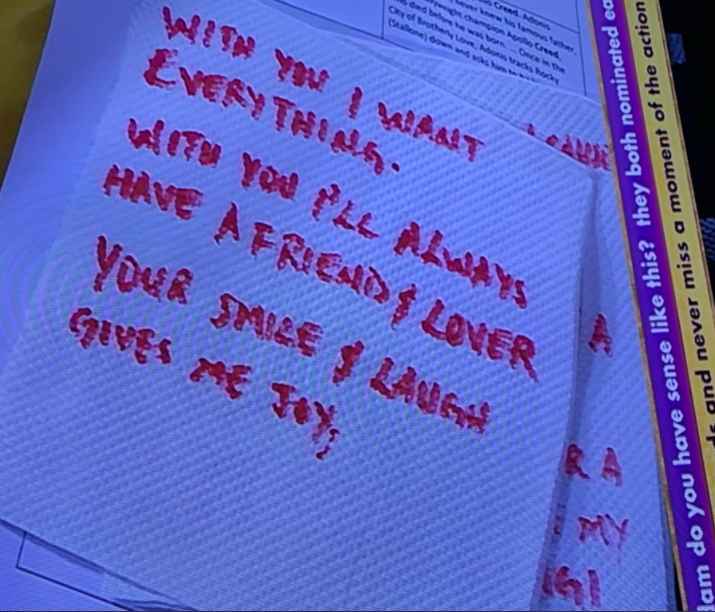 WITH YOU I WANT
EVERYTHING.
WITH YOU I'LL ALWAYS
HAVE A FRIEND & LOVER
YOUR SMILE & LAUGH
GIVES ME JOY,
LAUGH
A
R A
MY
Creed. Adonis
never knew his famous father,
champion Apollo Creed,
who died before he was born. ... Once in the
City of Brotherly Love, Adonis tracks Rocky
(Stallone) down and asks him
am do you have sense like this? they both nominated
and never miss a moment of the action